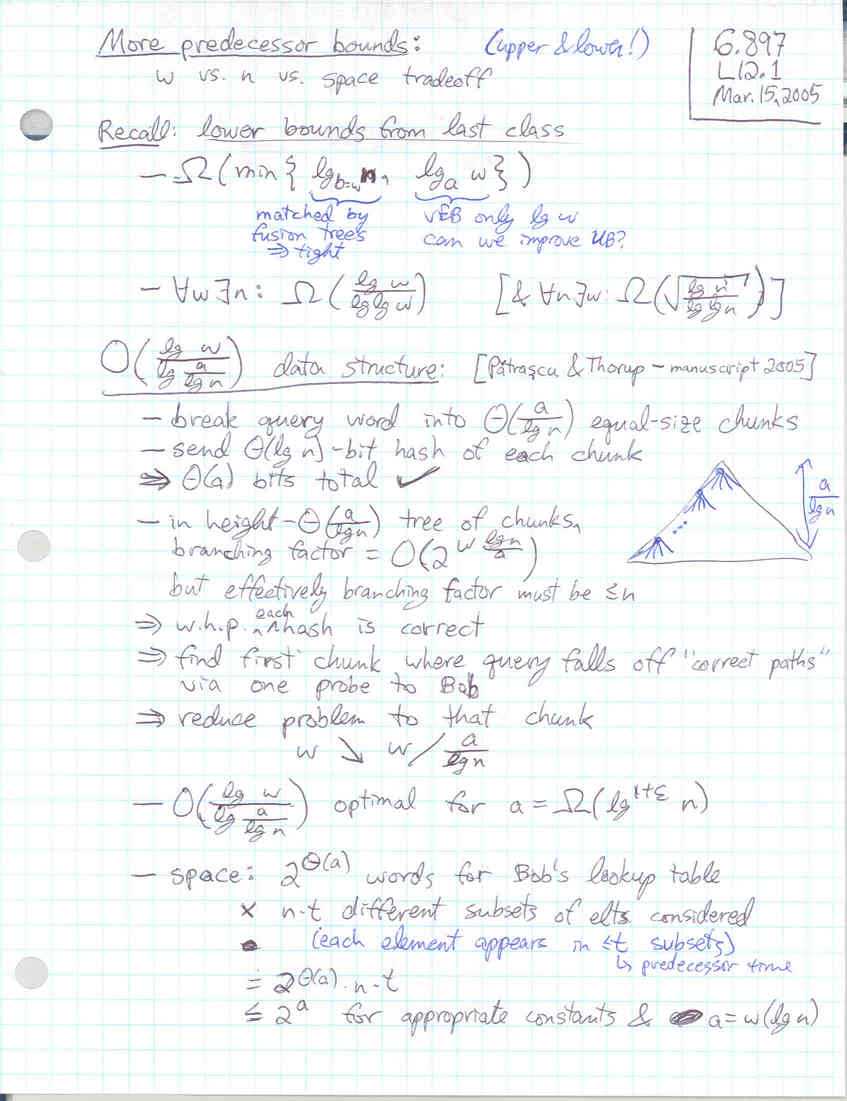 More predecessor bounds: (upper & lower!)
w vs. n vs. space tradeoff
6.897
L12.1
Mar. 15, 2005
Recall: lower bounds from last class
— Ω(min{ lg_{b=w} n, lg_a w })
matched by fusion trees ⇒ tight
vEB only lg w can we improve UB?
— ∀w ∃n: Ω(lg w / lg lg w) [& ∀n ∃w: Ω(√(lg n / lg lg n))]
O(lg w / lg (a / lg n)) data structure: [Pătraşcu & Thorup – manuscript 2005]
— break query word into Θ(a / lg n) equal-size chunks
— send Θ(lg n)-bit hash of each chunk
⇒ Θ(a) bits total ✓
— in height-Θ(a / lg n) tree of chunks,
branching factor = O(2^{w lg n / a})
but effectively branching factor must be ≤ n
a / lg n
⇒ w.h.p. each hash is correct
⇒ find first chunk where query falls off "correct paths"
via one probe to Bob
⇒ reduce problem to that chunk
w ↘ w / (a / lg n)
— O(lg w / lg (a / lg n)) optimal for a = Ω(lg^{1+ε} n)
— space: 2^{Θ(a)} words for Bob's lookup table
× n·t different subsets of elts considered
(each element appears in ≤t subsets)
↳ predecessor time
= 2^{Θ(a)} · n·t
≤ 2^a for appropriate constants & a = w(lg n)